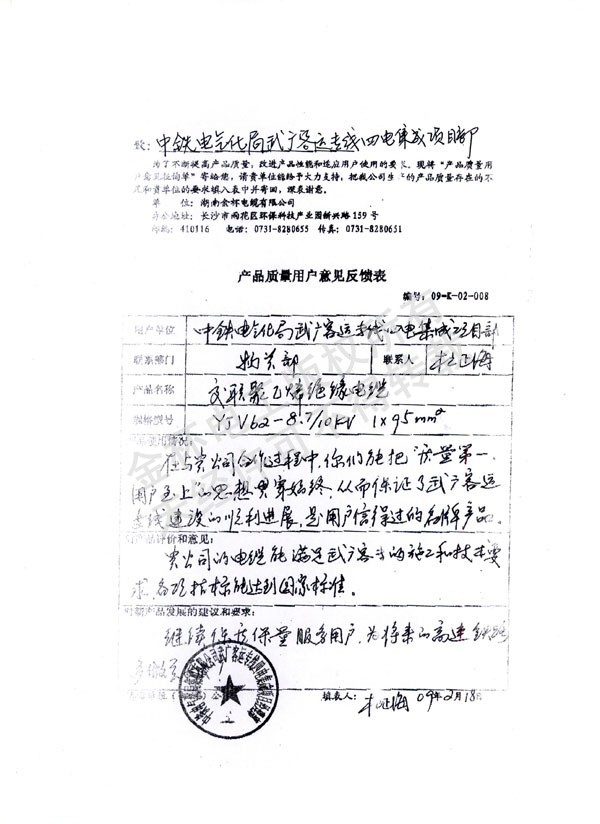 致：中铁电气化局武广客运专线四电集成项目部
为了不断提高产品质量，改进产品性能和适应用户使用的要求，现将“产品质量用
户意见征询单”寄给您，请贵单位能给予大力支持，把我公司生产的产品质量存在的不
足和贵单位的要求填入表中并寄回，谨表谢意。
单 位：湖南金杯电缆有限公司
办公地址：长沙市雨花区环保科技产业园新兴路159号
邮编：410116 电话：0731-8280655 传真：0731-8280651
产品质量用户意见反馈表
编号：09-K-02-008
用户单位 中铁电气化局武广客运专线四电集成项目部
联系部门 物资部 联系人 杜正海
产品名称 交联聚乙烯绝缘电缆
规格型号 YJV62-8.7/10KV 1×95mm²
使用情况：
在与贵公司合作过程中，你们能把“质量第一，
用户至上”的思想贯穿始终，从而保证了武广客运
专线建设的顺利进展，是用户信得过的名牌产品。
对产品评价和意见：
贵公司的电缆能满足武广客专的施工和技术要
求，各项指标能达到国家标准。
对新产品发展的建议和要求：
继续保质保量服务用户，为将来的高速铁路
多做
填表人：杜正海 09年2月18日